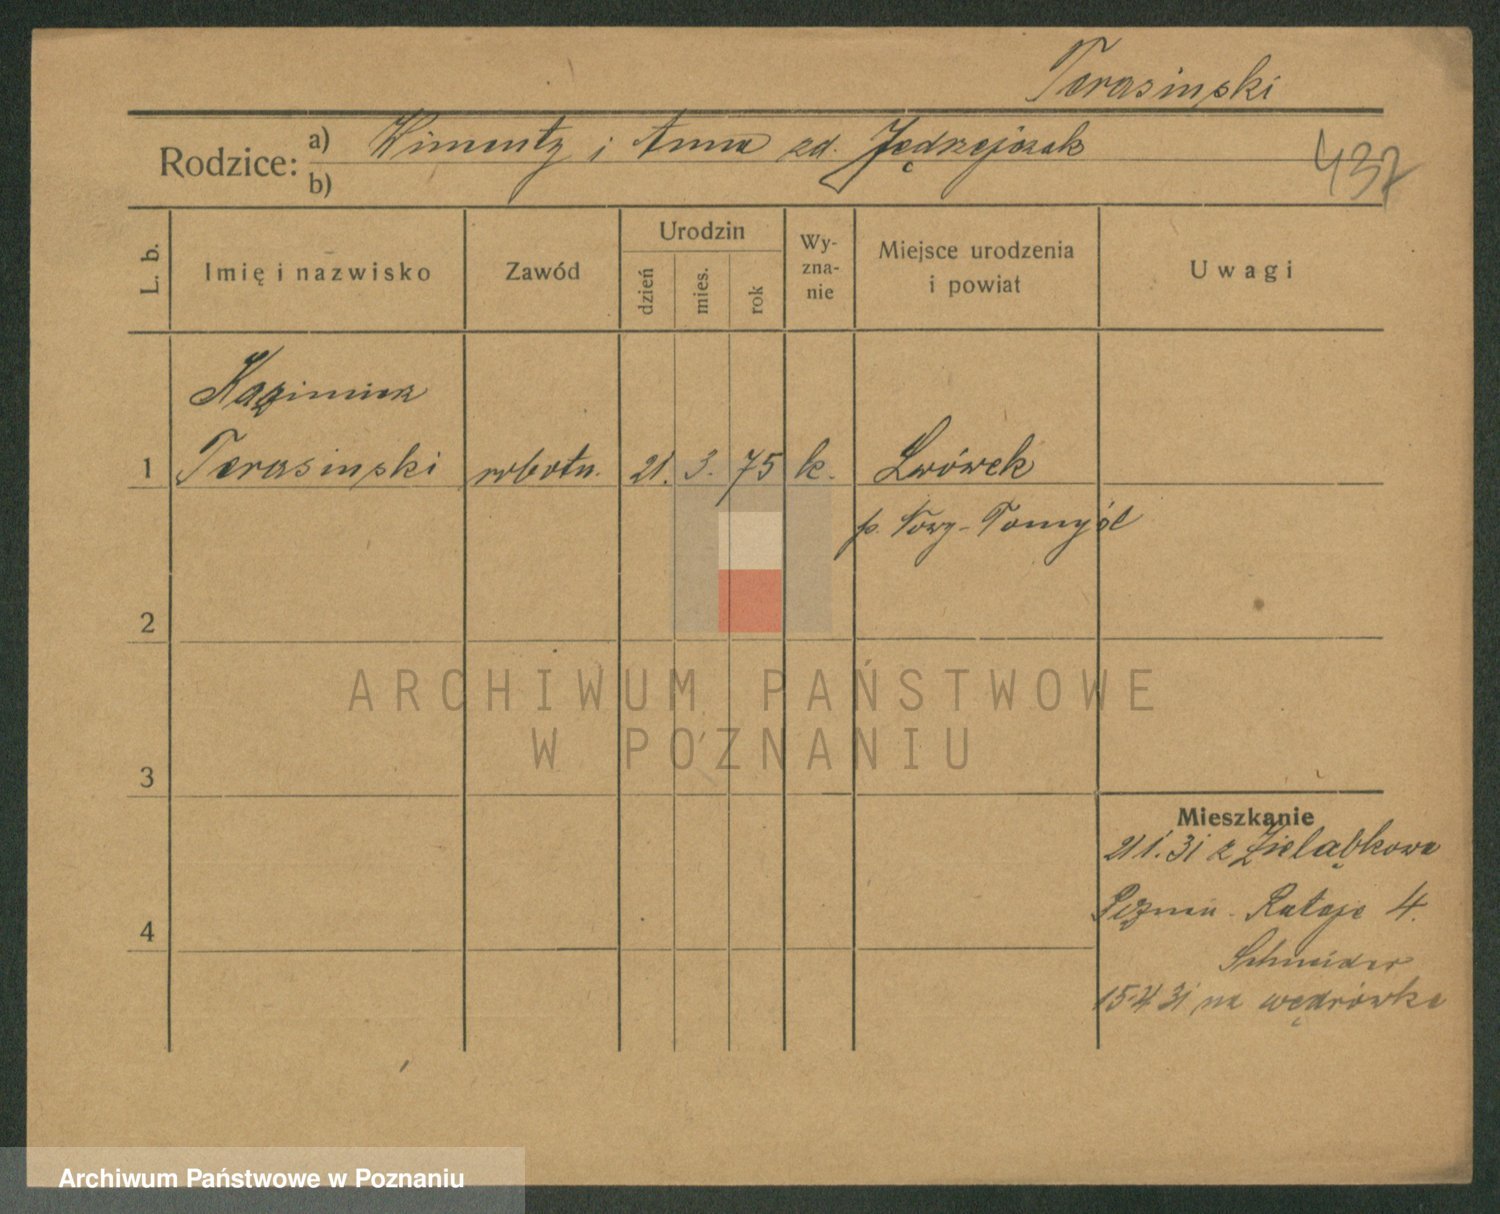 Terasinski
Rodzice:
a) Wincenty i Anna zd. Jędrzejczak
b)
437
L. b.
Imię i nazwisko
Zawód
Urodzin
dzień
mies.
rok
Wy-
zna-
nie
Miejsce urodzenia
i powiat
Uwagi
Kazimierz
1 Terasinski robotn. 21. 3. 75 k. Lwówek
p. Nowy-Tomyśl
2
ARCHIWUM PAŃSTWOWE
W POZNANIU
3
Mieszkanie
21 1. 31 z
4
Poznań - Rataje 4.
Schneider
15 4 31 na wędrówkę
Archiwum Państwowe w Poznaniu